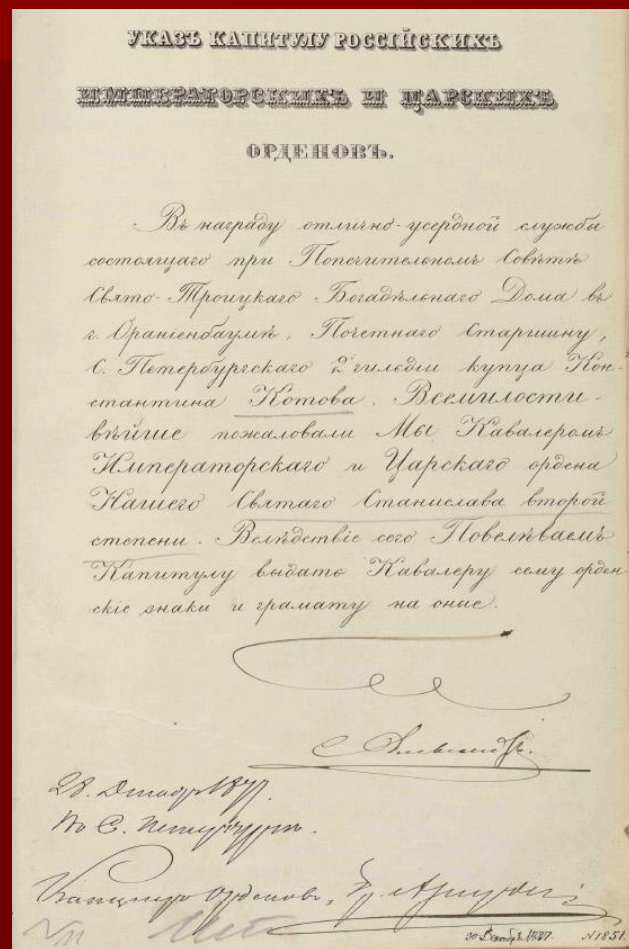 УКАЗЪ КАПИТУЛУ РОССІЙСКИХЪ
ИМПЕРАТОРСКИХЪ И ЦАРСКИХЪ
ОРДЕНОВЪ.
Въ награду отлично-усердной службы
состоящаго при Попечительномъ Совѣтѣ
Свято-Троицкаго Богадѣльнаго Дома въ
г. Ораніенбаумѣ, Почетнаго Старшину,
С. Петербургскаго 2й гильдіи купца Кон-
стантина Котова, Всемилости-
вѣйше пожаловали Мы Кавалеромъ
Императорскаго и Царскаго ордена
Нашего Святаго Станислава второй
степени. Вслѣдствіе сего Повелѣваемъ
Капитулу выдать Кавалеру сему орден
скіе знаки и грамату на оные.
28. Декабря 1877.
Въ С. Петербургѣ.
Канцлеръ Орденовъ, Гр.
30 Декабря 1877. N 1851.